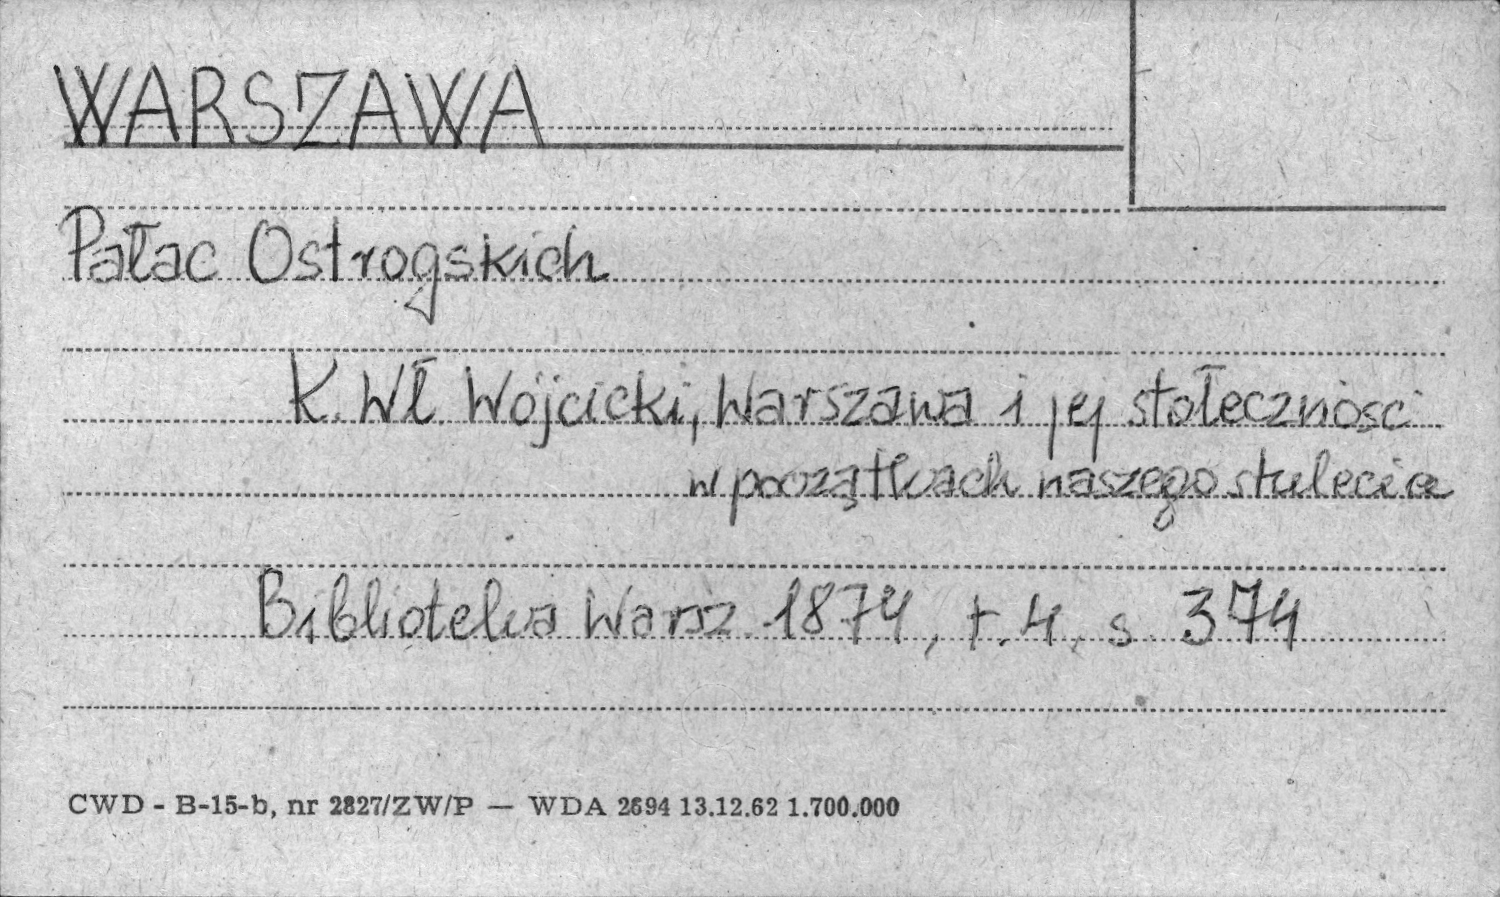 WARSZAWA
Pałac Ostrogskich
K. Wł. Wójcicki, Warszawa i jej stołeczność
w początkach naszego stulecia
Biblioteka Warsz. 1874, t. 4, s. 374
CWD - B-15-b, nr 2827/ZW/P — WDA 2694 13.12.62 1.700.000